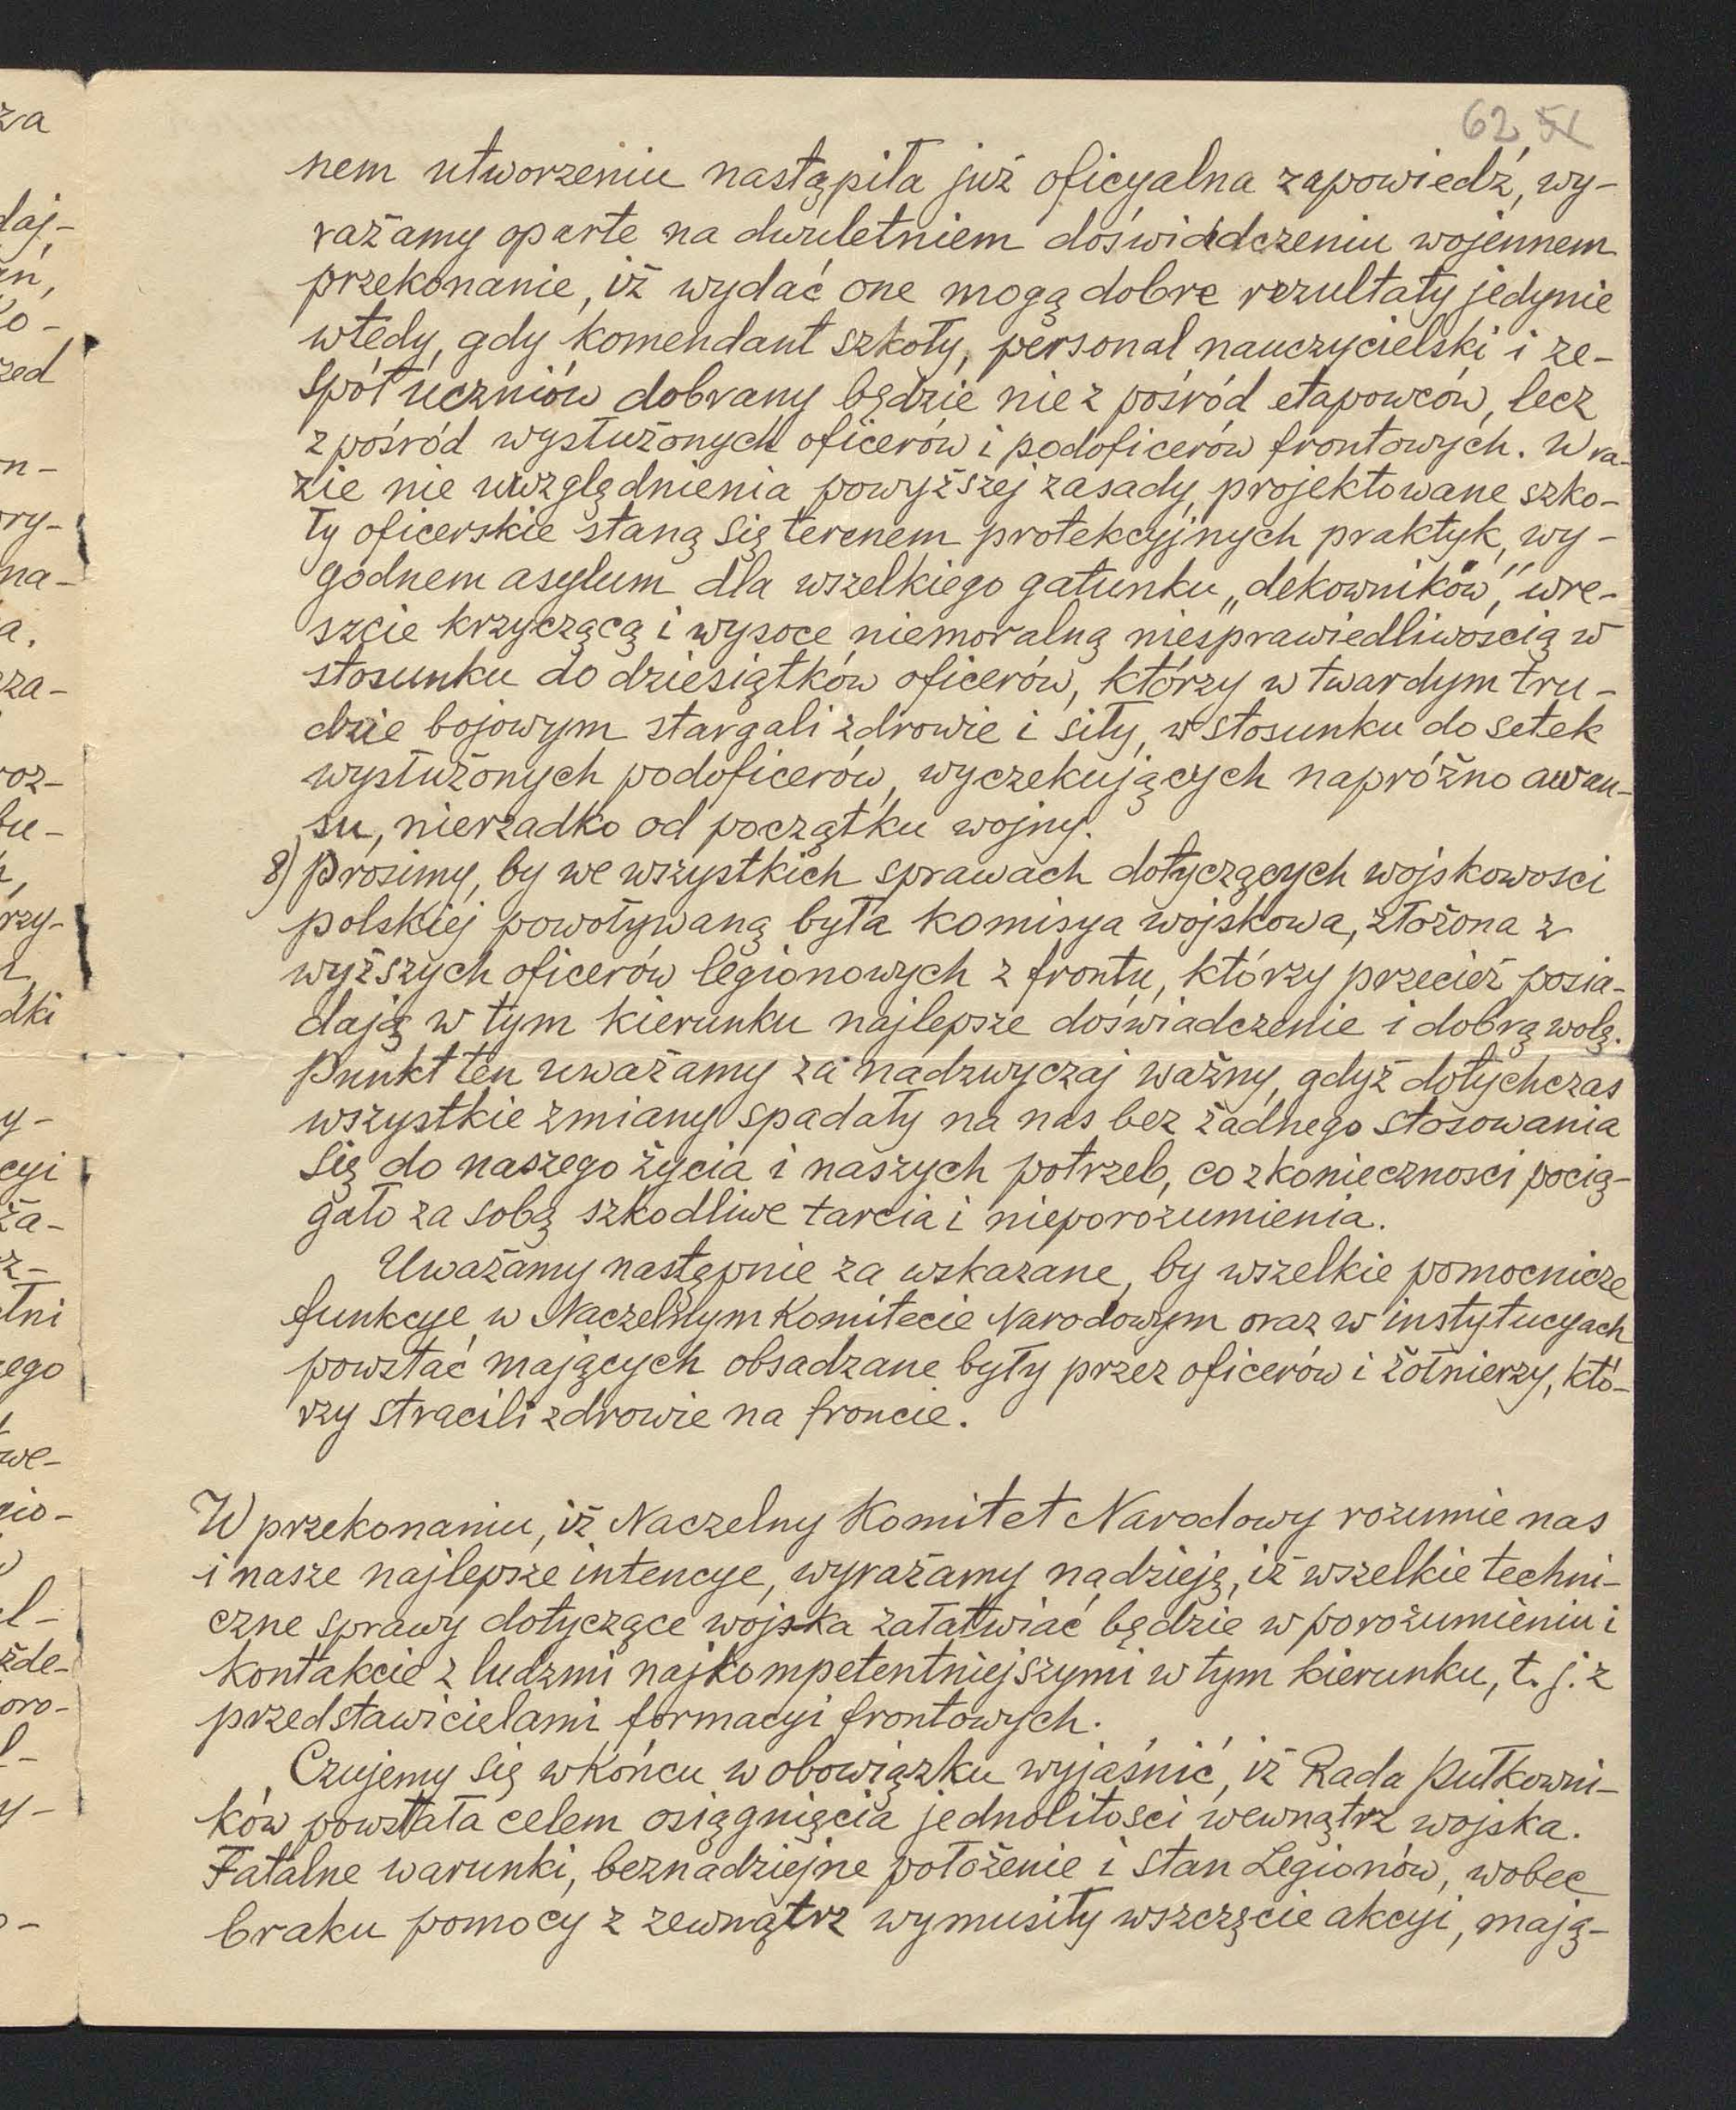 62 51
nem utworzeniu nastąpiła już oficyalna zapowiedź, wy-
rażamy oparte na dwuletniem doświadczeniu wojennem
przekonanie, iż wydać one mogą dobre rezultaty jedynie
wtedy, gdy komendant szkoły, personal nauczycielski i ze-
spół uczniów dobrany będzie nie z pośród etapowców, lecz
z pośród wysłużonych oficerów i podoficerów frontowych. W ra-
zie nie uwzględnienia powyższej zasady, projektowane szko-
ły oficerskie staną się terenem protekcyjnych praktyk, wy-
godnem asylum dla wszelkiego gatunku „dekowników", wre-
szcie krzyczącą i wysoce niemoralną niesprawiedliwością w
stosunku do dziesiątków oficerów, którzy w twardym tru-
dzie bojowym stargali zdrowie i siły, w stosunku do setek
wysłużonych podoficerów, wyczekujących napróżno awan-
su, nierzadko od początku wojny.
8) Prosimy, by we wszystkich sprawach dotyczących wojskowosci
polskiej powoływaną była komisya wojskowa, złożona z
wyższych oficerów legionowych z frontu, którzy przecież posia-
dają w tym kierunku najlepsze doświadczenie i dobrą wolę.
Punkt ten uważamy za nadzwyczaj ważny, gdyż dotychczas
wszystkie zmiany spadały na nas bez żadnego stosowania
się do naszego życia i naszych potrzeb, co z konieczności pocią-
gało za sobą szkodliwe tarcia i nieporozumienia.
Uważamy następnie za wskazane, by wszelkie pomocnicze
funkcye w Naczelnym Komitecie Narodowym oraz w instytucyach
powstać mających obsadzane były przez oficerów i żołnierzy, któ-
rzy stracili zdrowie na froncie.
W przekonaniu, iż Naczelny Komitet Narodowy rozumie nas
i nasze najlepsze intencye, wyrażamy nadzieję, iż wszelkie techni-
czne sprawy dotyczące wojska załatwiać będzie w porozumieniu i
kontakcie z ludzmi najkompetentniejszymi w tym kierunku, t. j. z
przedstawicielami formacyi frontowych.
Czujemy się wkońcu w obowiązku wyjaśnić, iż Rada Pułkowni-
ków powstała celem osiągnięcia jednolitości wewnątrz wojska.
Fatalne warunki, beznadziejne położenie i stan Legionów, wobec
braku pomocy z zewnątrz wymusiły wszczęcie akcyi, mają-